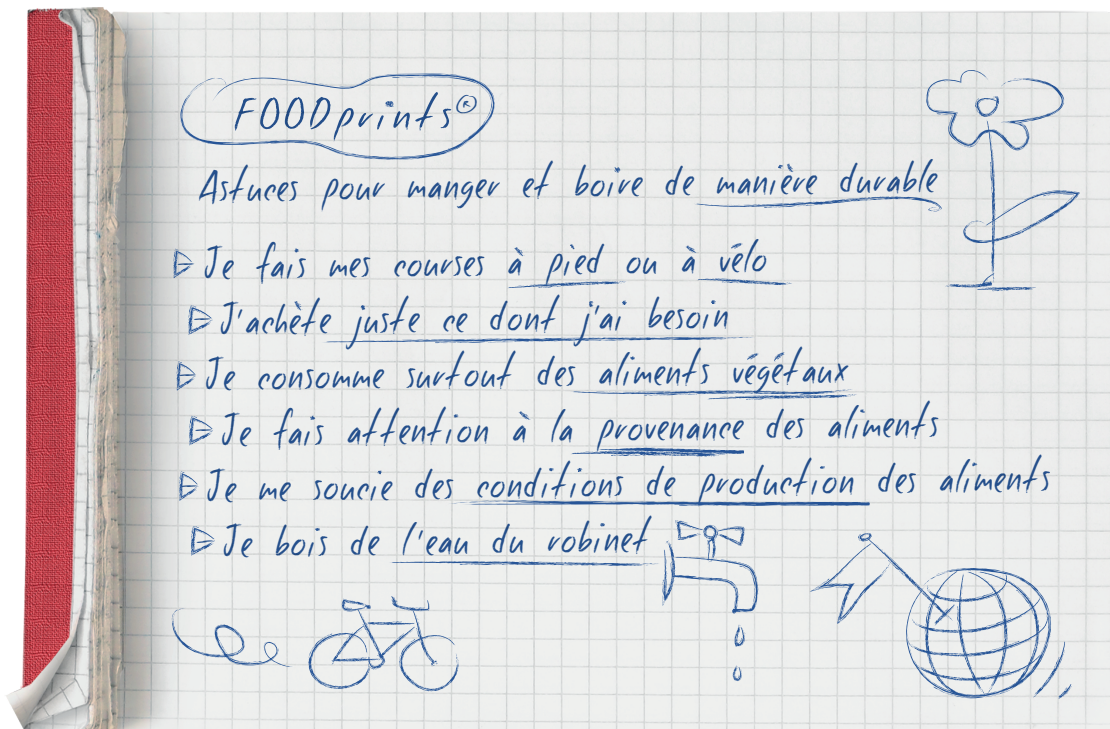 FOODprints®
Astuces pour manger et boire de manière durable
Je fais mes courses à pied ou à vélo
J'achète juste ce dont j'ai besoin
Je consomme surtout des aliments végétaux
Je fais attention à la provenance des aliments
Je me soucie des conditions de production des aliments
Je bois de l'eau du robinet